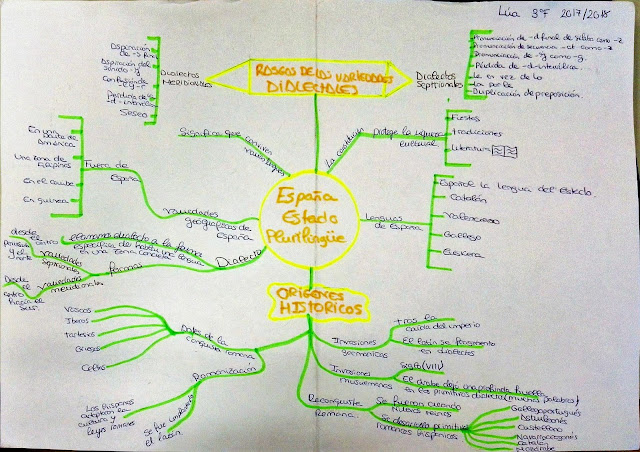 Lúa 3ºF 2017/2018
RASGOS DE LAS VARIEDADES
DIALECTALES
Dialectos
Meridionales
Aspiración
de -s final
Aspiración del
sonido -j
Confusión de
-l y -r
Pérdida de la
-d- intervo
Seseo
Dialectos
Septrionales
Pronunciación de -d final de sílaba como -z
Pronunciación de secuencia -ct como -z
Pronunciación de -g como -j.
Pérdida de -d- intervo.
La en vez de lo
La por le
Duplicación de preposición.
España
Estado
Plurilingüe
Significa que conviven
varias lenguas
La constitución
protege la riqueza
cultural
Fiestas
Tradiciones
Literatura
Lenguas
de España
Español la lengua del estado.
Catalán
Valenciano
Gallego
Euskera
Variedades
geográficas de
España
Fuera de
España
En una
parte de
América
Una zona de
Filipinas
En el caribe
En guinea
Dialecto
Llamamos dialecto a la forma
específica de hablar una lengua
en una zona concreta
Forman
variedades
septrionales
desde
el centro
península
y el
norte
variedades
meridionales
Desde
el
centro
hacia el
sur.
ORÍGENES
HISTÓRICOS
Antes de la
conquista romana
Vascos
Íberos
tartesios
Griegos
Celtas
Romanización
Los hispanos
adoptaron la
cultura y
leyes romanas
Se fue implantando
el latín
Invasiones
germánicas
tras la
caída del imperio
El latín se fragmentó
en dialectos
Invasiones
musulmanas
Siglo (VIII)
El árabe dejó una profunda huella
en los primitivos dialectos (muchas palabras)
Reconquista
Romana
Se fueron creando
nuevos reinos
Se desarrolla primitivos
romances hispánicos
Gallegoportugués
Asturleonés
Castellano
Navarroaragonés
Catalán
Mozárabe